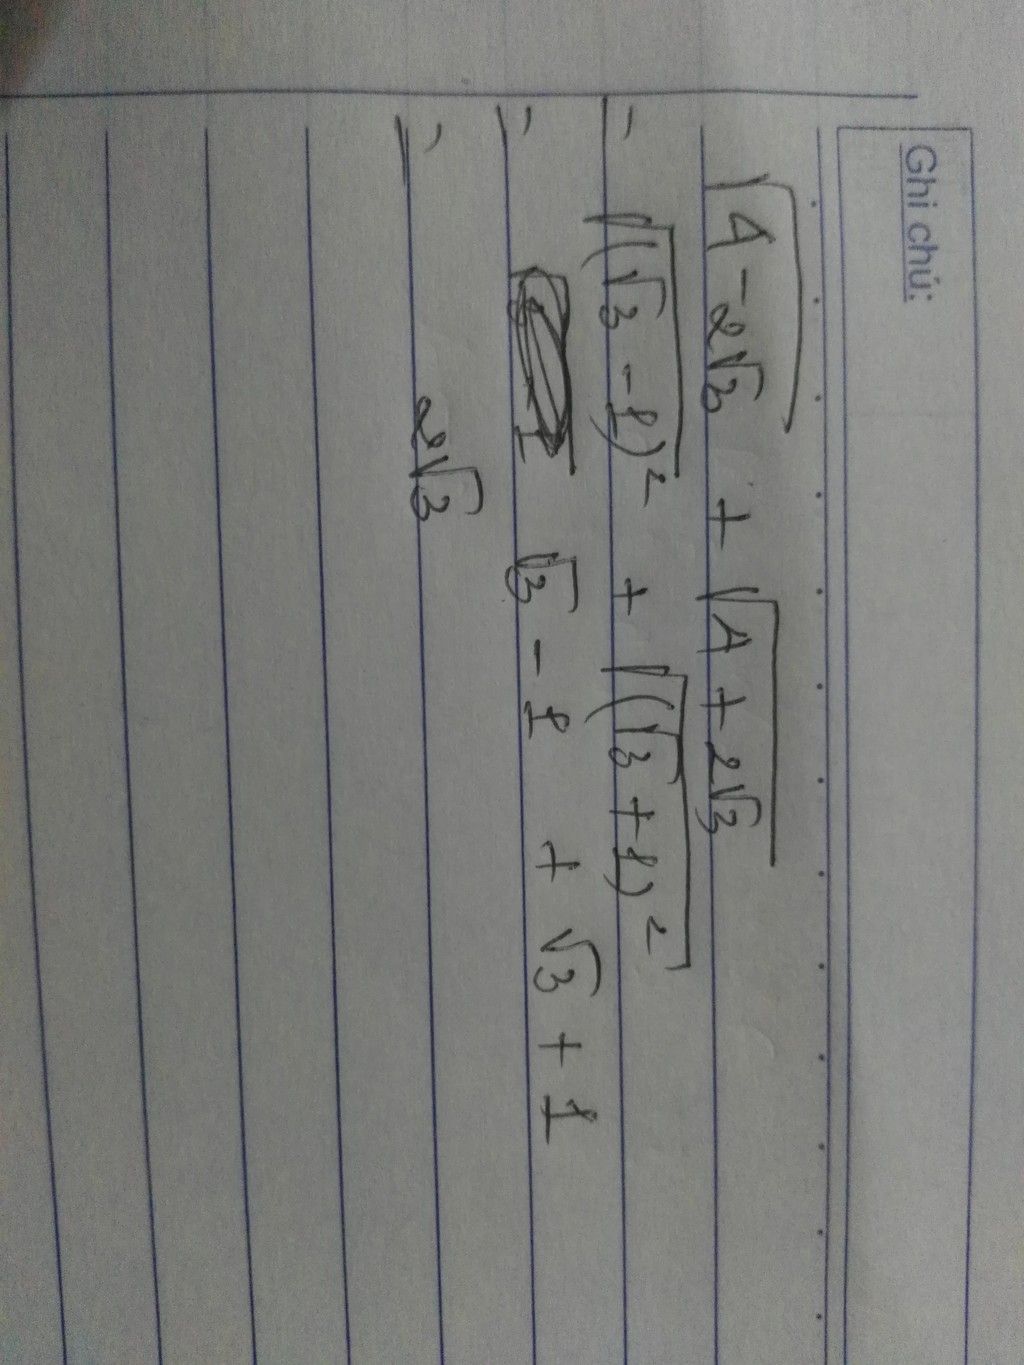 Ghi chú:
√(4 - 2√3) + √(4 + 2√3)
= √((√3 - 1)²) + √((√3 + 1)²)
= √3 - 1 + √3 + 1
= 2√3